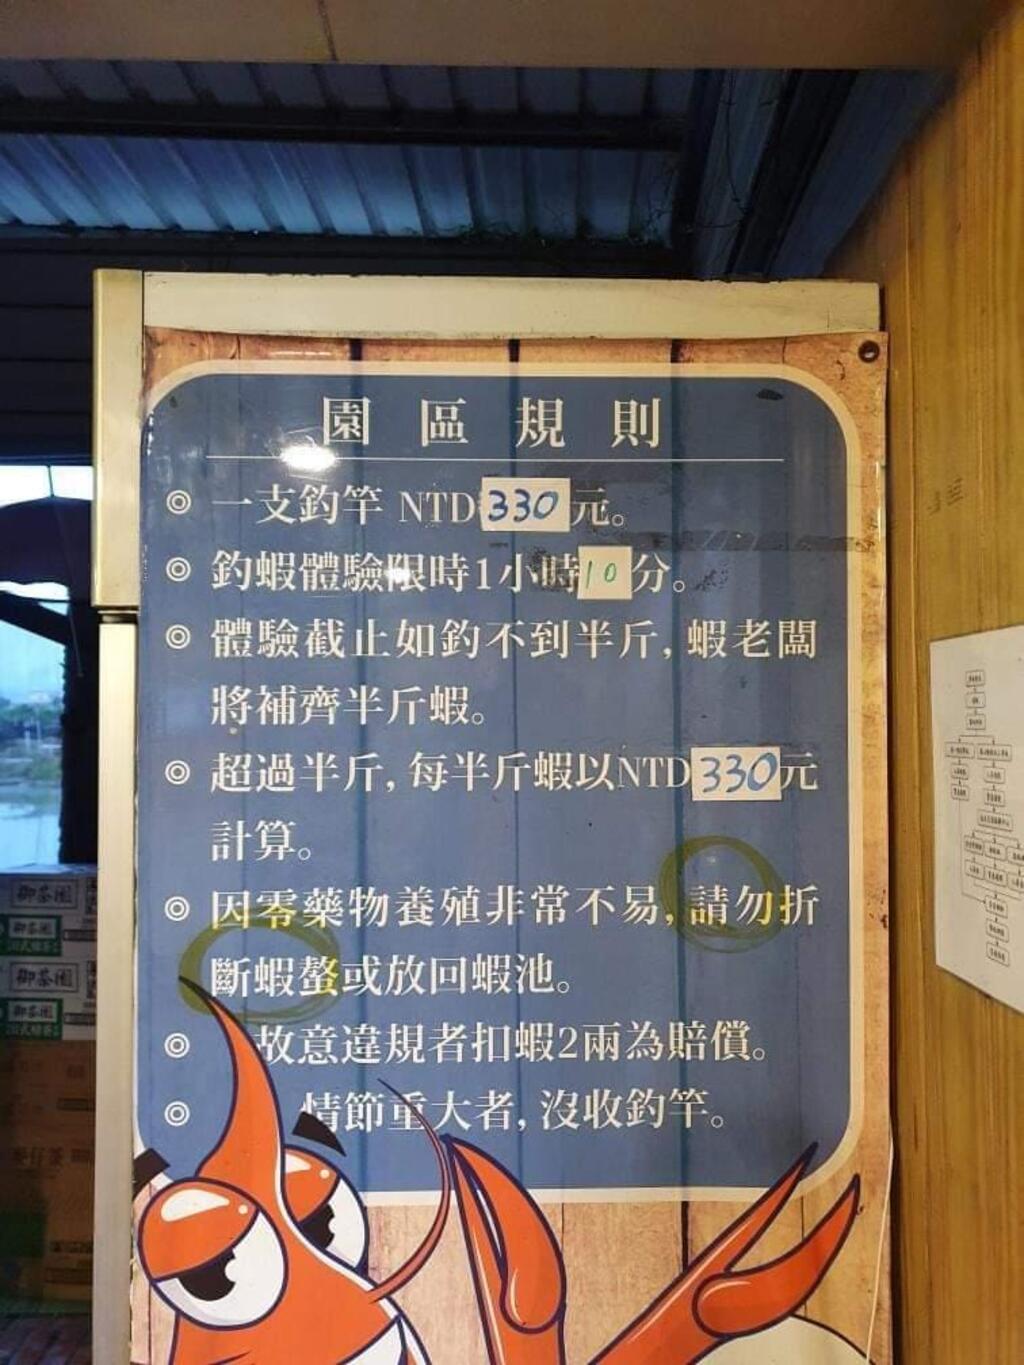 園區規則
◎ 一支釣竿 NTD 330 元。
◎ 釣蝦體驗限時1小時10分。
◎ 體驗截止如釣不到半斤, 蝦老闆
將補齊半斤蝦。
◎ 超過半斤, 每半斤蝦以NTD330元
計算。
◎ 因零藥物養殖非常不易, 請勿折
斷蝦螯或放回蝦池。
◎ 故意違規者扣蝦2兩為賠償。
◎ 情節重大者, 沒收釣竿。
御茶園
御茶園
御茶園
御茶園